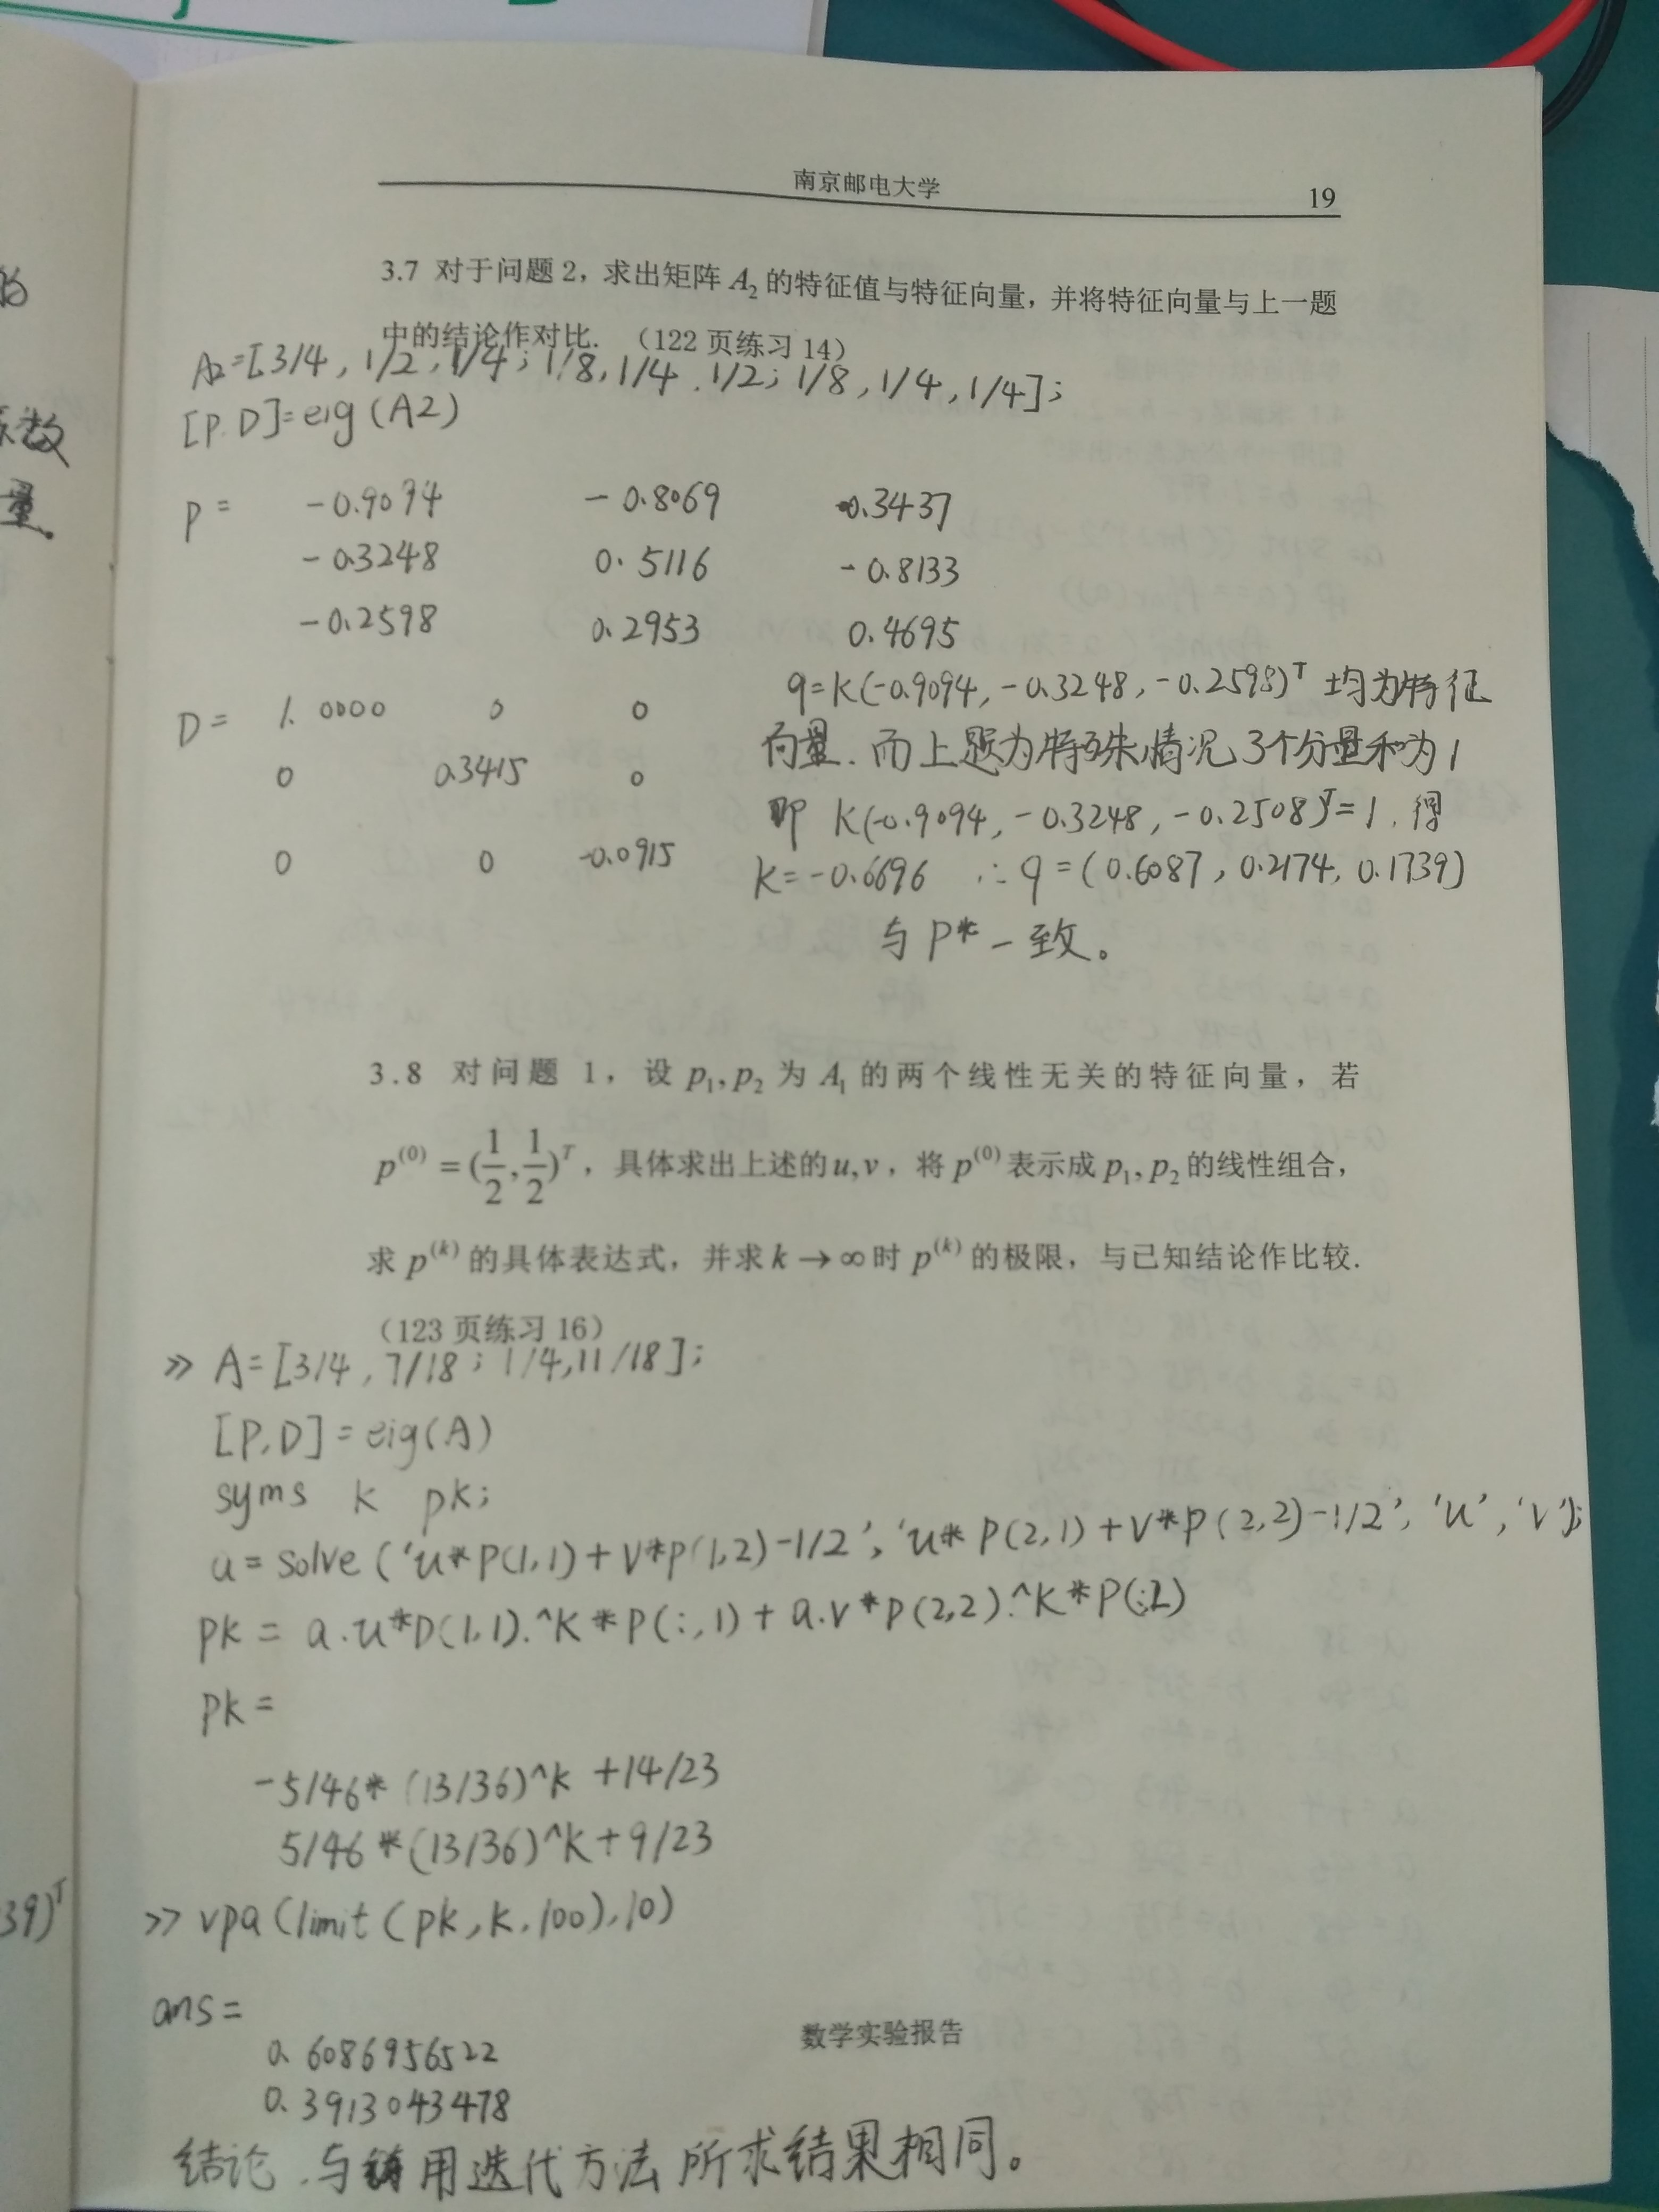 南京邮电大学
19
3.7 对于问题 2，求出矩阵 A₂ 的特征值与特征向量，并将特征向量与上一题
中的结论作对比. （122 页练习 14）
A2=[3/4, 1/2, 1/4; 1/8, 1/4, 1/2; 1/8, 1/4, 1/4];
[P,D]=eig(A2)
P = -0.9094 -0.8069 0.3437
-0.3248 0.5116 -0.8133
-0.2598 0.2953 0.4695
q=k(-0.9094, -0.3248, -0.2598)ᵀ 均为特征
D = 1.0000 0 0
向量. 而上题为特殊情况 3个分量和为1
0 0.3415 0
即 k(-0.9094, -0.3248, -0.2508)ᵀ=1, 得
0 0 -0.0915
k=-0.6696 ∴ q=(0.6087, 0.2174, 0.1739)
与 P* 一致。
3.8 对问题 1，设 p₁,p₂ 为 A₁ 的两个线性无关的特征向量，若
p⁽⁰⁾ = (1/2, 1/2)ᵀ，具体求出上述的 u,v，将 p⁽⁰⁾ 表示成 p₁,p₂ 的线性组合，
求 p⁽ᵏ⁾ 的具体表达式，并求 k→∞ 时 p⁽ᵏ⁾ 的极限，与已知结论作比较.
（123 页练习 16）
>> A=[3/4, 7/18; 1/4, 11/18];
[P,D]=eig(A)
syms k pk;
a=solve('u*P(1,1)+v*P(1,2)-1/2', 'u*P(2,1)+v*P(2,2)-1/2', 'u', 'v');
pk = a.u*D(1,1).^k*P(:,1)+a.v*P(2,2).^k*P(:,2)
pk =
-5/46*(13/36)^k+14/23
5/46*(13/36)^k+9/23
>> vpa(limit(pk,k,100),10)
39)ᵀ
ans =
0.6086956522
0.3913043478
数学实验报告
结论. 与用迭代方法所求结果相同。
系数
量.